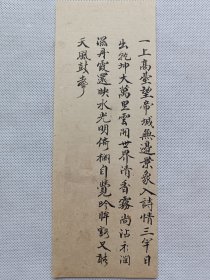 一上高臺望帝城無邊景象入詩情三竿日
出乾坤大萬里雲開世界清香霧尚沾衣潤
濕丹霞還映水光明倚欄自覺吟眸豁又
天風鼓